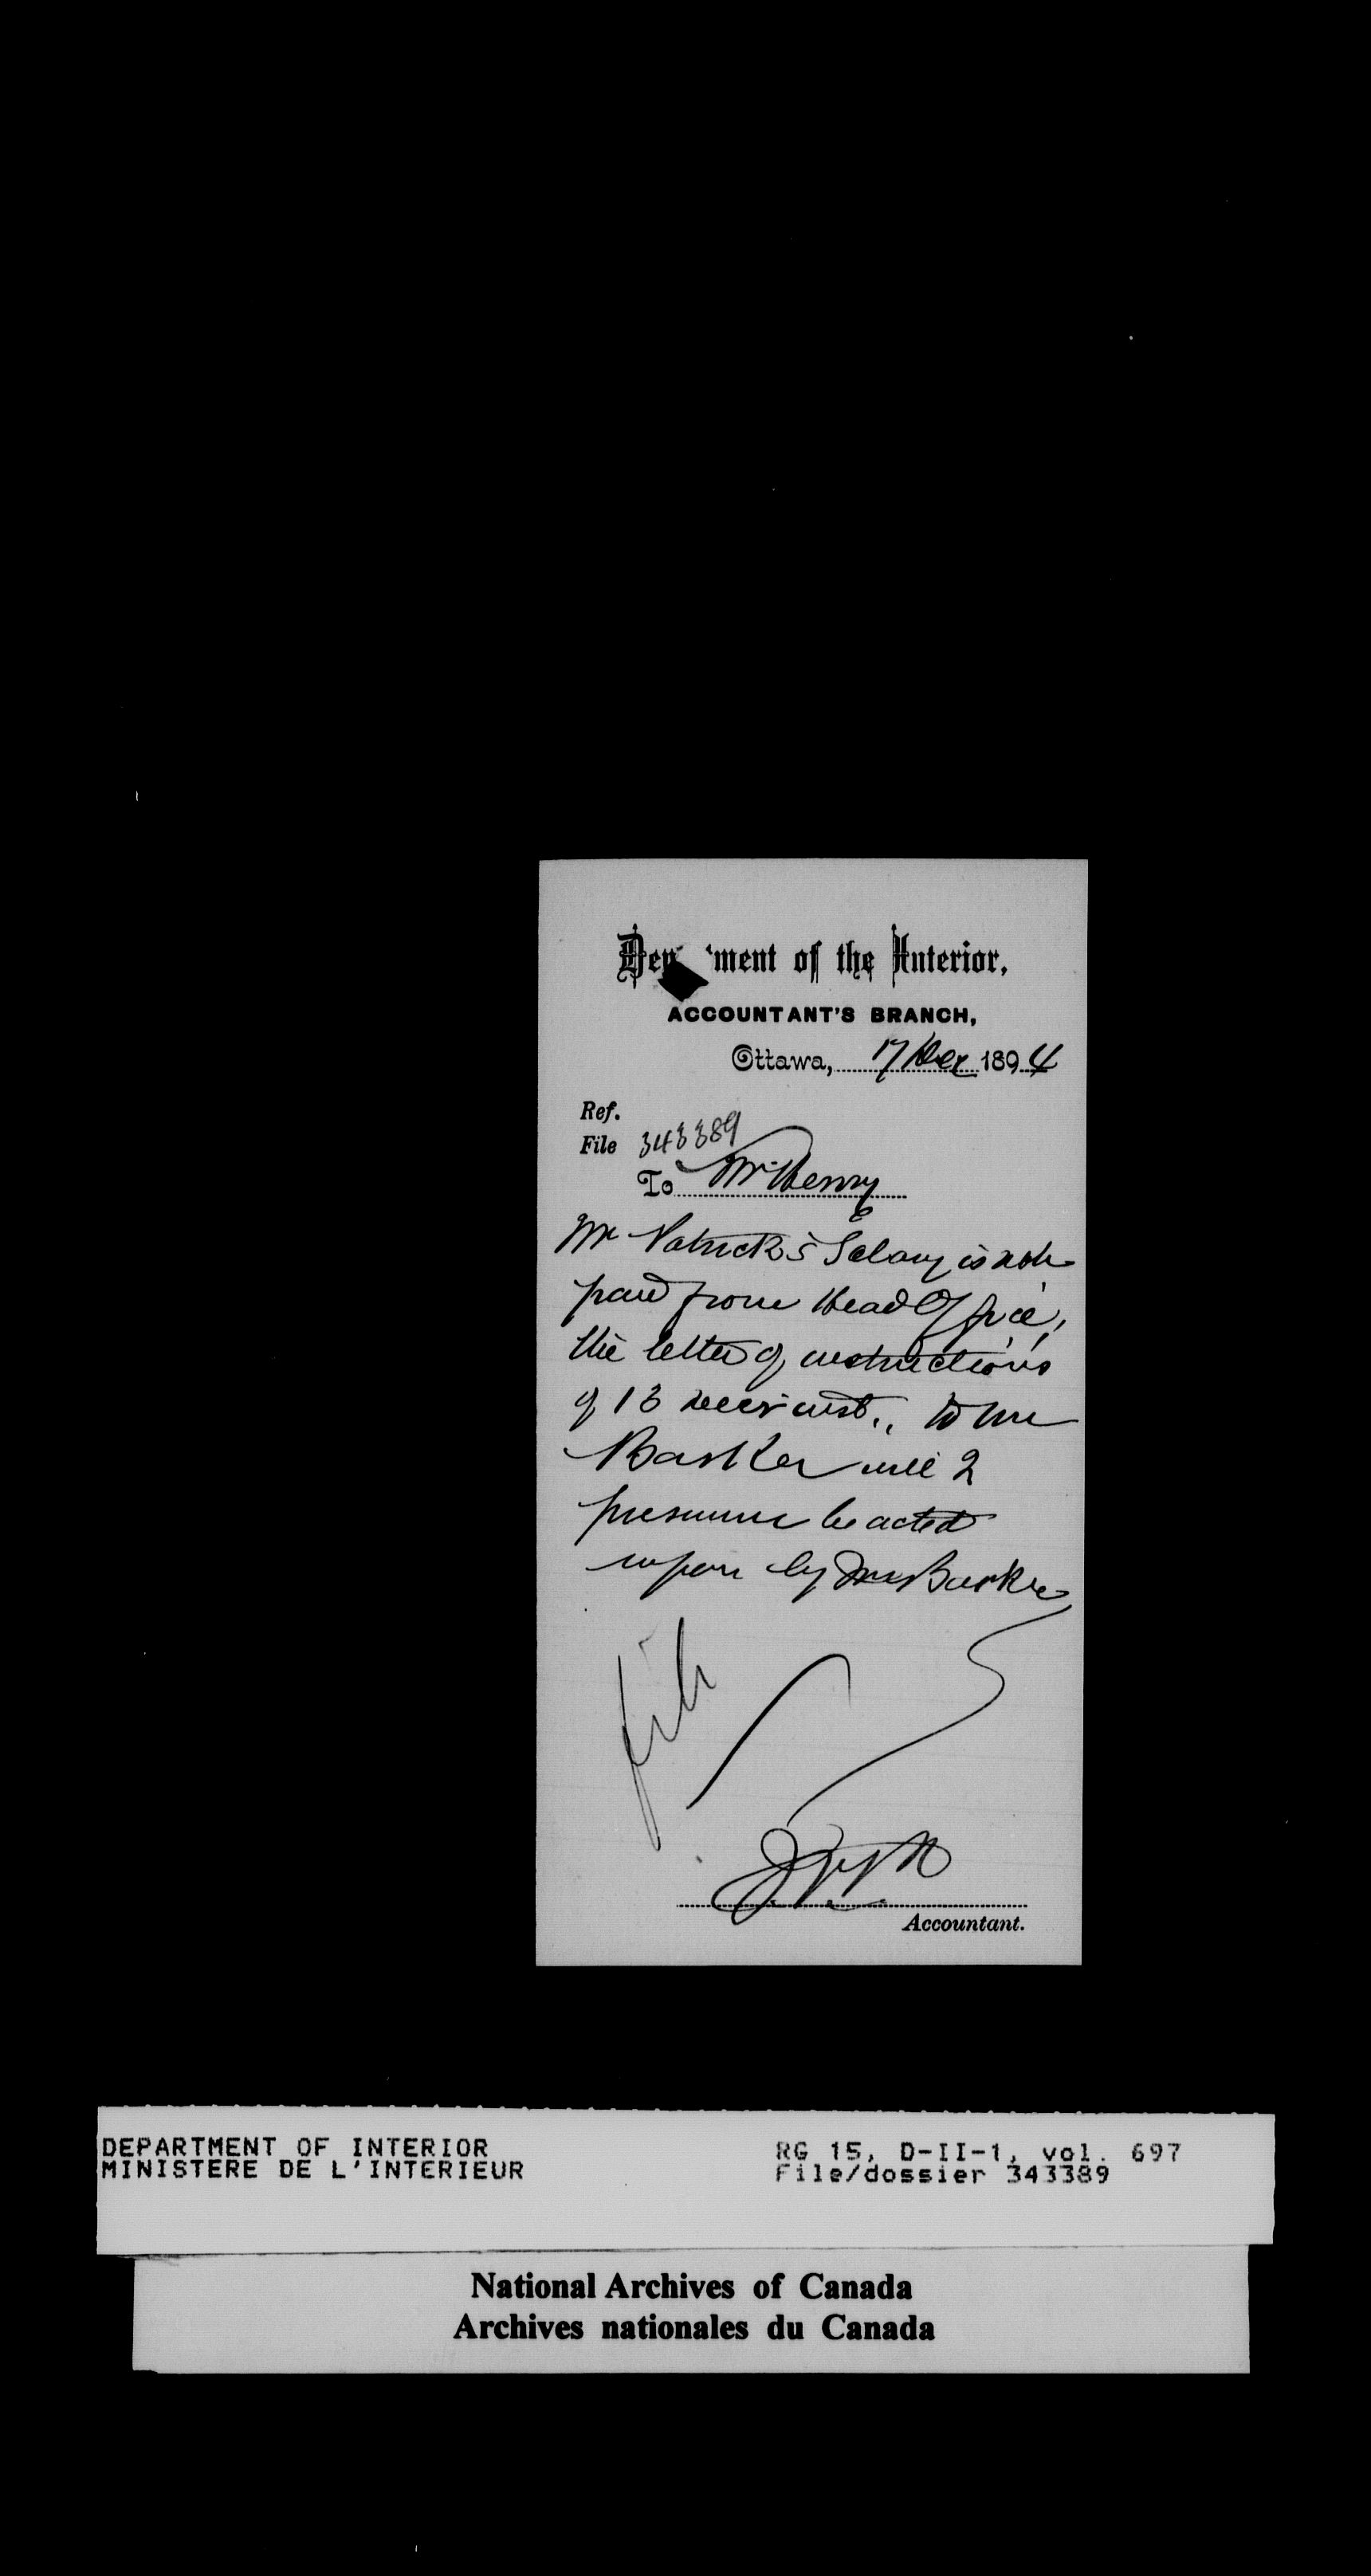 Dep ment of the Interior,
ACCOUNTANT'S BRANCH,
Ottawa, 17 Dec 1894
Ref.
File 343389
To Mr Henry
Mr Patrick's Salary is not
paid from Head Office,
the letter of instructions
of 13 inst., to Mr
Barker will I
presume be acted
upon by Mr Barker
file
Accountant.
DEPARTMENT OF INTERIOR
MINISTERE DE L'INTERIEUR
RG 15, D-II-1, vol. 697
File/dossier 343389
National Archives of Canada
Archives nationales du Canada